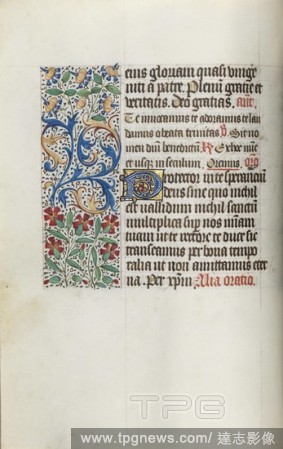 eius gloriam quasi vnige
niti a patre. Plenum gracie et
veritatis. Deo gratias. ant.
Te inuocamus te adoramus te lau
damus o beata trinitas. Sit no
men dni benedictu. Ex hoc nuc
et usqz in seculum. Oremus. oro
Protector in te sperancium
deus sine quo nichil
est ualidum nichil sanctu
multiplica sup nos miam
tuam ut te rectore te duce sic
transeamus per bona tempo
ralia ut non amittamus eter
na. Per xpm. Alia oratio.
TPG
www.tpgnews.com/達志影像